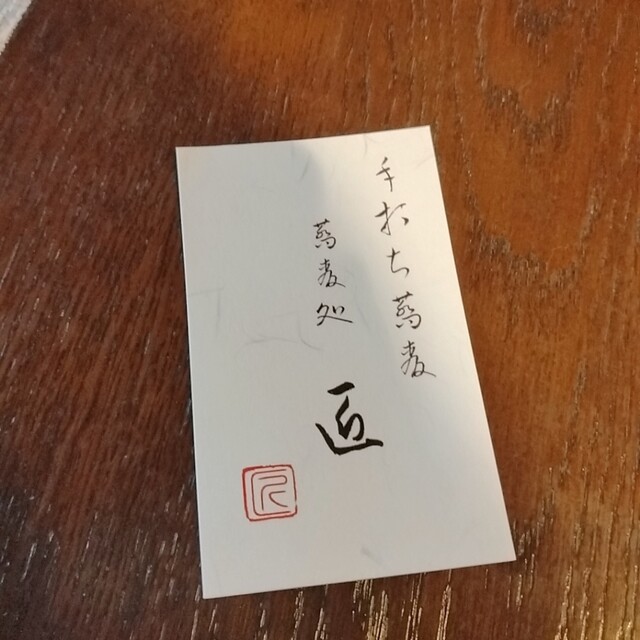 手打ち蕎麦
蕎麦処
匠
匠